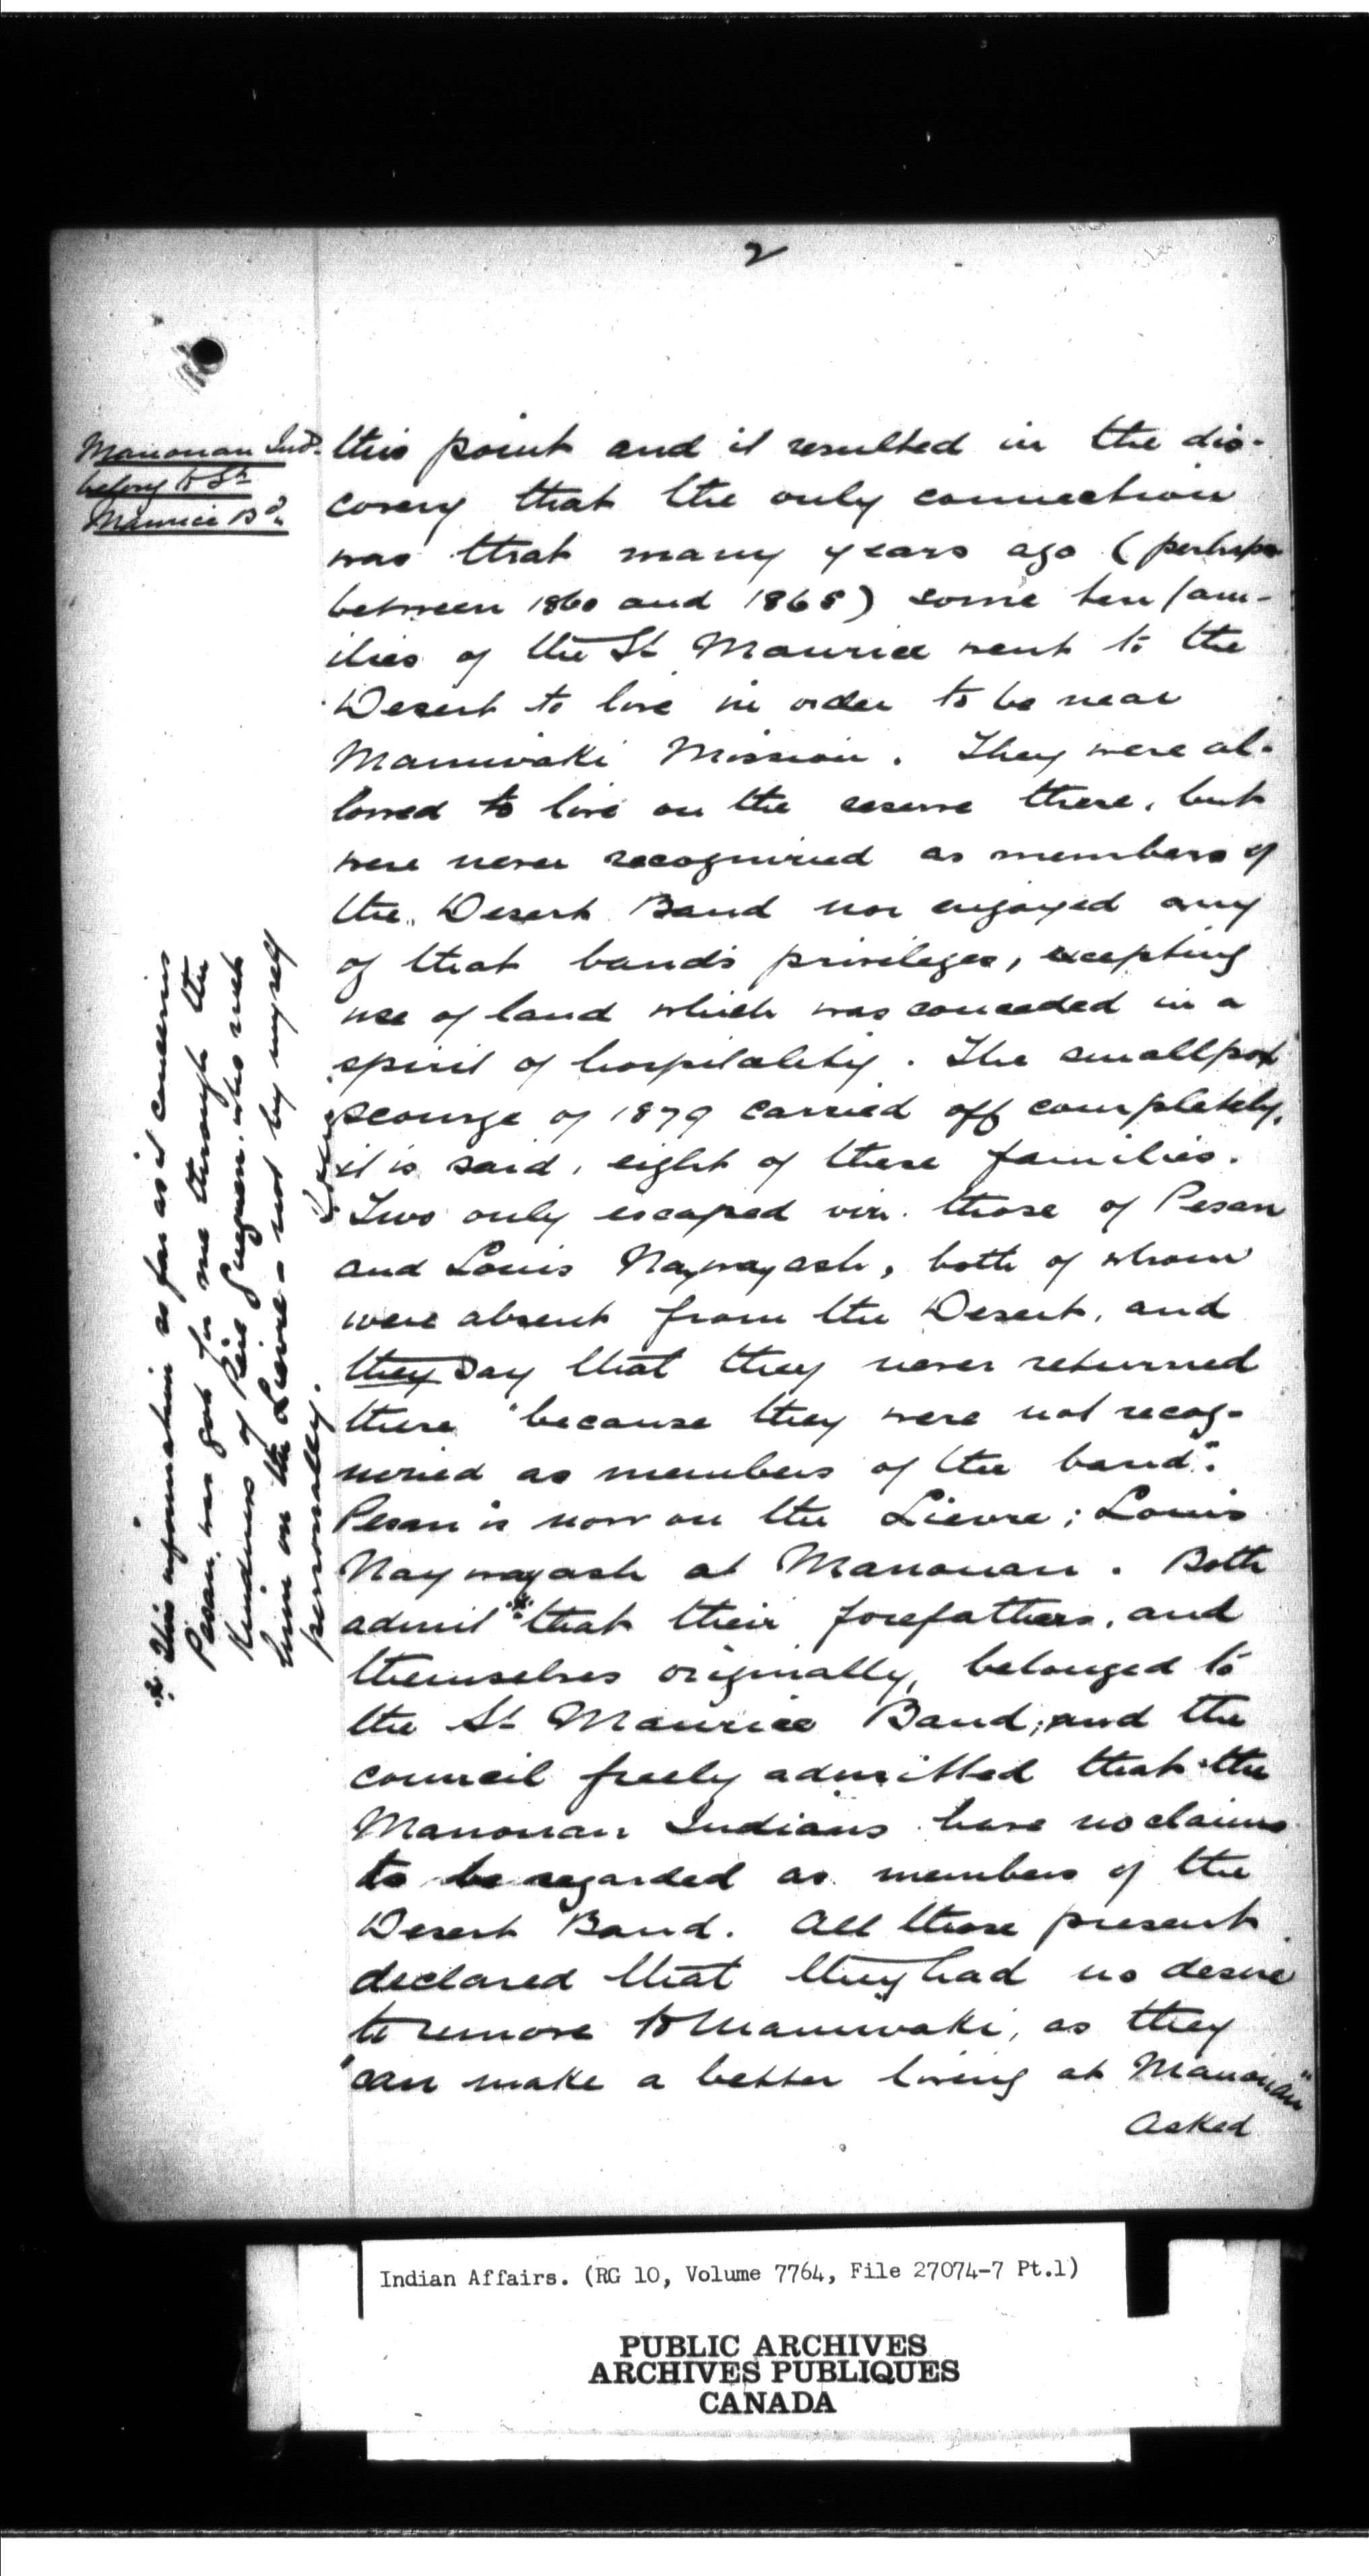 2
Manouan Inds.
belong to St
Maurice Bd.
this point and it resulted in the dis-
covery that the only connection
was that many years ago (perhaps
between 1860 and 1865) some ten fam-
ilies of the St Maurice went to the
Desert to live in order to be near
Maniwaki Mission. They were al-
lowed to live on the reserve there, but
were never recognized as members of
the Desert Band nor enjoyed any
of that band's privileges, excepting
use of land which was conceded in a
spirit of hospitality. The smallpox
scourge of 1879 carried off completely,
it is said, eight of these families.
Two only escaped viz. those of Pesan
and Louis Naywayash, both of whom
were absent from the Desert, and
they say that they never returned
there "because they were not recog-
nized as members of the band".
Pesan is now on the Lievre; Louis
Naywayash at Manouan. Both
admit * that their forefathers, and
themselves originally, belonged to
the St Maurice Band; and the
council freely admitted that the
Manouan Indians have no claims
to be regarded as members of the
Desert Band. All those present
declared that they had no desire
to remove to Maniwaki, as they
"can make a better living at Manouan"
Asked
* This information as far as it concerns
Pesan, was got for me through the
kindness of Père Guéguen, who met
him on the Lievre - not by myself
personally.
Indian Affairs. (RG 10, Volume 7764, File 27074-7 Pt.1)
PUBLIC ARCHIVES
ARCHIVES PUBLIQUES
CANADA